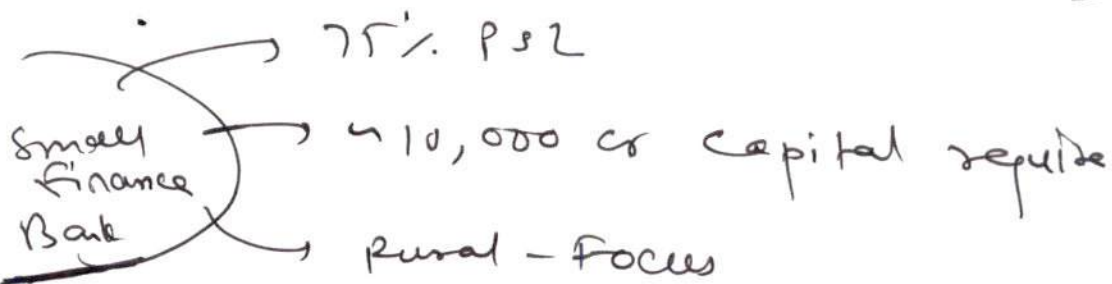 75% PSL
Small
Finance
Bank
~10,000 cr Capital require
Rural - Focus